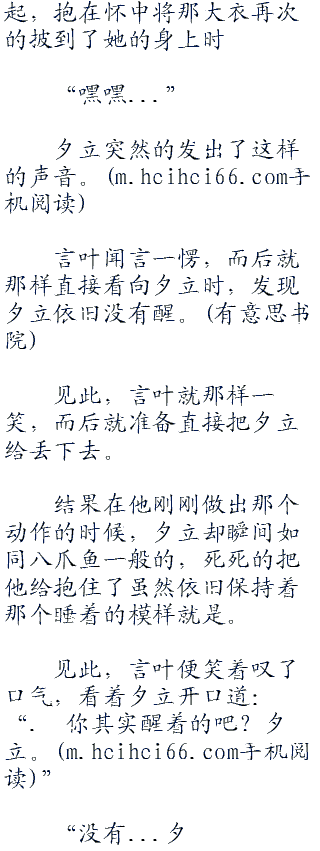 起，抱在怀中将那大衣再次
的披到了她的身上时
“嘿嘿...”
夕立突然的发出了这样
的声音。(m.hcihci66.com手
机阅读)
言叶闻言一愣，而后就
那样直接看向夕立时，发现
夕立依旧没有醒。(有意思书
院)
见此，言叶就那样一
笑，而后就准备直接把夕立
给丢下去。
结果在他刚刚做出那个
动作的时候，夕立却瞬间如
同八爪鱼一般的，死死的把
他给抱住了虽然依旧保持着
那个睡着的模样就是。
见此，言叶便笑着叹了
口气，看着夕立开口道：
“. 你其实醒着的吧？夕
立。(m.hcihci66.com手机阅
读)”
“没有...夕